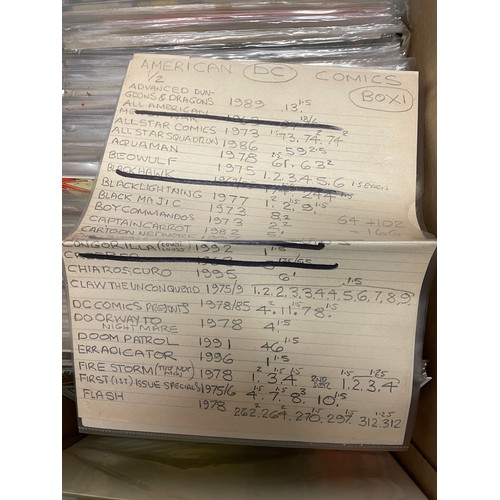 AMERICAN DC COMICS
1/2
BOX1
ADVANCED DUN-
GEONS & DRAGONS 1989 13.1·5
ALL AMERICAN
ALL STAR COMICS 1973 73, 74, 74
ALL STAR SQUADRON 1986 59 2·5
AQUAMAN 1978 61, 63
BEOWULF 1975 1, 2, 3, 4, 5, 6
BLACKHAWK
BLACKLIGHTNING 1977 1, 2, 9
BLACK MAJIC 1973 8
BOY COMMANDOS 1973 2
64 + 102
= 166
CAPTAIN CARROT 1982
CARTOON NETWORK
CONGORILLA 1992 1 1·5
CHIAROSCURO 1995 6
CLAW THE UNCONQUERED 1975/9 1, 2, 2, 3, 3, 4, 4, 5, 6, 7, 8, 9 1·5
DC COMICS PRESENTS 1978/85 4, 11, 78
DOORWAY TO
NIGHTMARE 1978 4 1·5
DOOM PATROL 1991 46 1·5
ERRADICATOR 1996 1 1·5
FIRE STORM (THE NUC MAN) 1978 1, 3, 4 2ND SER 1, 2, 3, 4
FIRST (1ST) ISSUE SPECIALS 1975/6 4, 7, 8, 10
FLASH 1978 262, 264, 270, 297, 312, 312